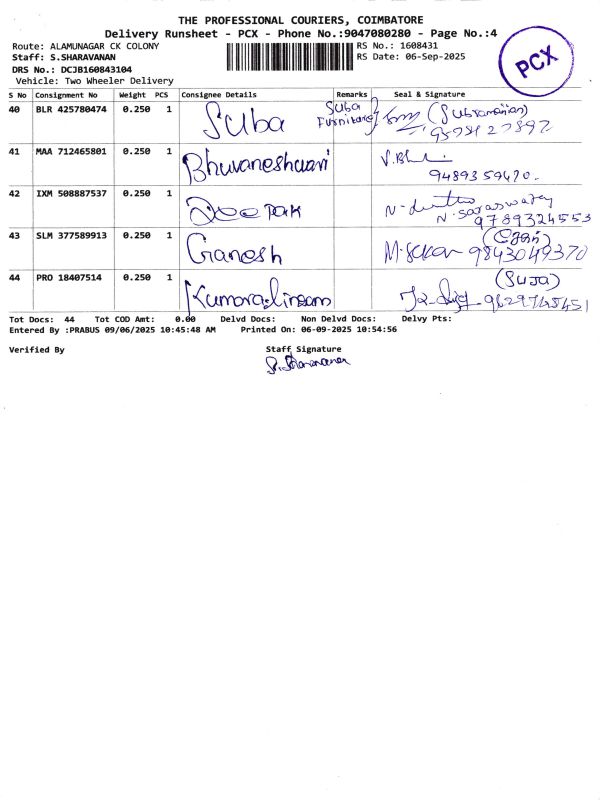 THE PROFESSIONAL COURIERS, COIMBATORE
Delivery Runsheet - PCX - Phone No.:9047080280 - Page No.:4
Route: ALAMUNAGAR CK COLONY
RS No.: 1608431
Staff: S.SHARAVANAN
RS Date: 06-Sep-2025
DRS No.: DCJB160843104
Vehicle: Two Wheeler Delivery
PCX
S No Consignment No Weight PCS Consignee Details Remarks Seal & Signature
40 BLR 425780474 0.250 1 Suba Suba Furniture (Subramanian)
41 MAA 712465801 0.250 1 Bhuvaneshwari V.Bh
9489359470.
42 IXM 508887537 0.250 1 Deepak
N. Saraswathy
9789324553
43 SLM 377589913 0.250 1 Ganesh M. 9843049370
44 PRO 18407514 0.250 1 Kumaralingam (SUJA)
9629745451
Tot Docs: 44 Tot COD Amt: 0.00 Delvd Docs: Non Delvd Docs: Delvy Pts:
Entered By :PRABUS 09/06/2025 10:45:48 AM Printed On: 06-09-2025 10:54:56
Verified By Staff Signature
S. Sharavanan